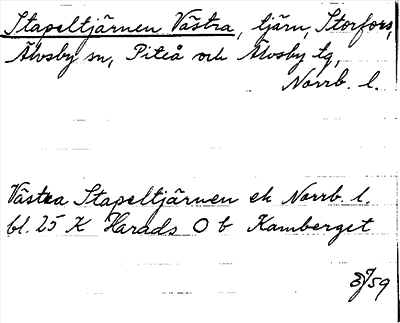 Stapeltjärnen Västra, tjärn, Storfors,
Älvsby sn, Piteå och Älvsby tg,
Norrb. l.
Västra Stapeltjärnen ek Norrb. l.
bl. 25 K Harads O b Kamberget